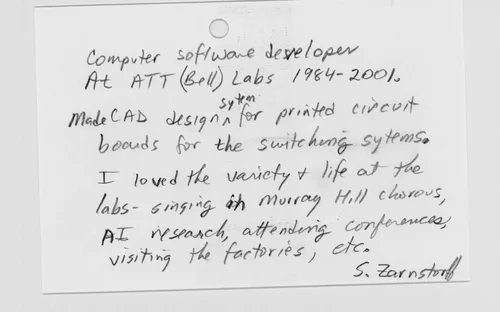 Computer software developer
At ATT (Bell) Labs 1984-2001.
Made CAD design sytem for printed circuit
boards for the switching sytems.
I loved the variety + life at the
labs- singing in Murray Hill chorous,
AI research, attending conferences,
visiting the factories, etc.
S. Zarnstorff